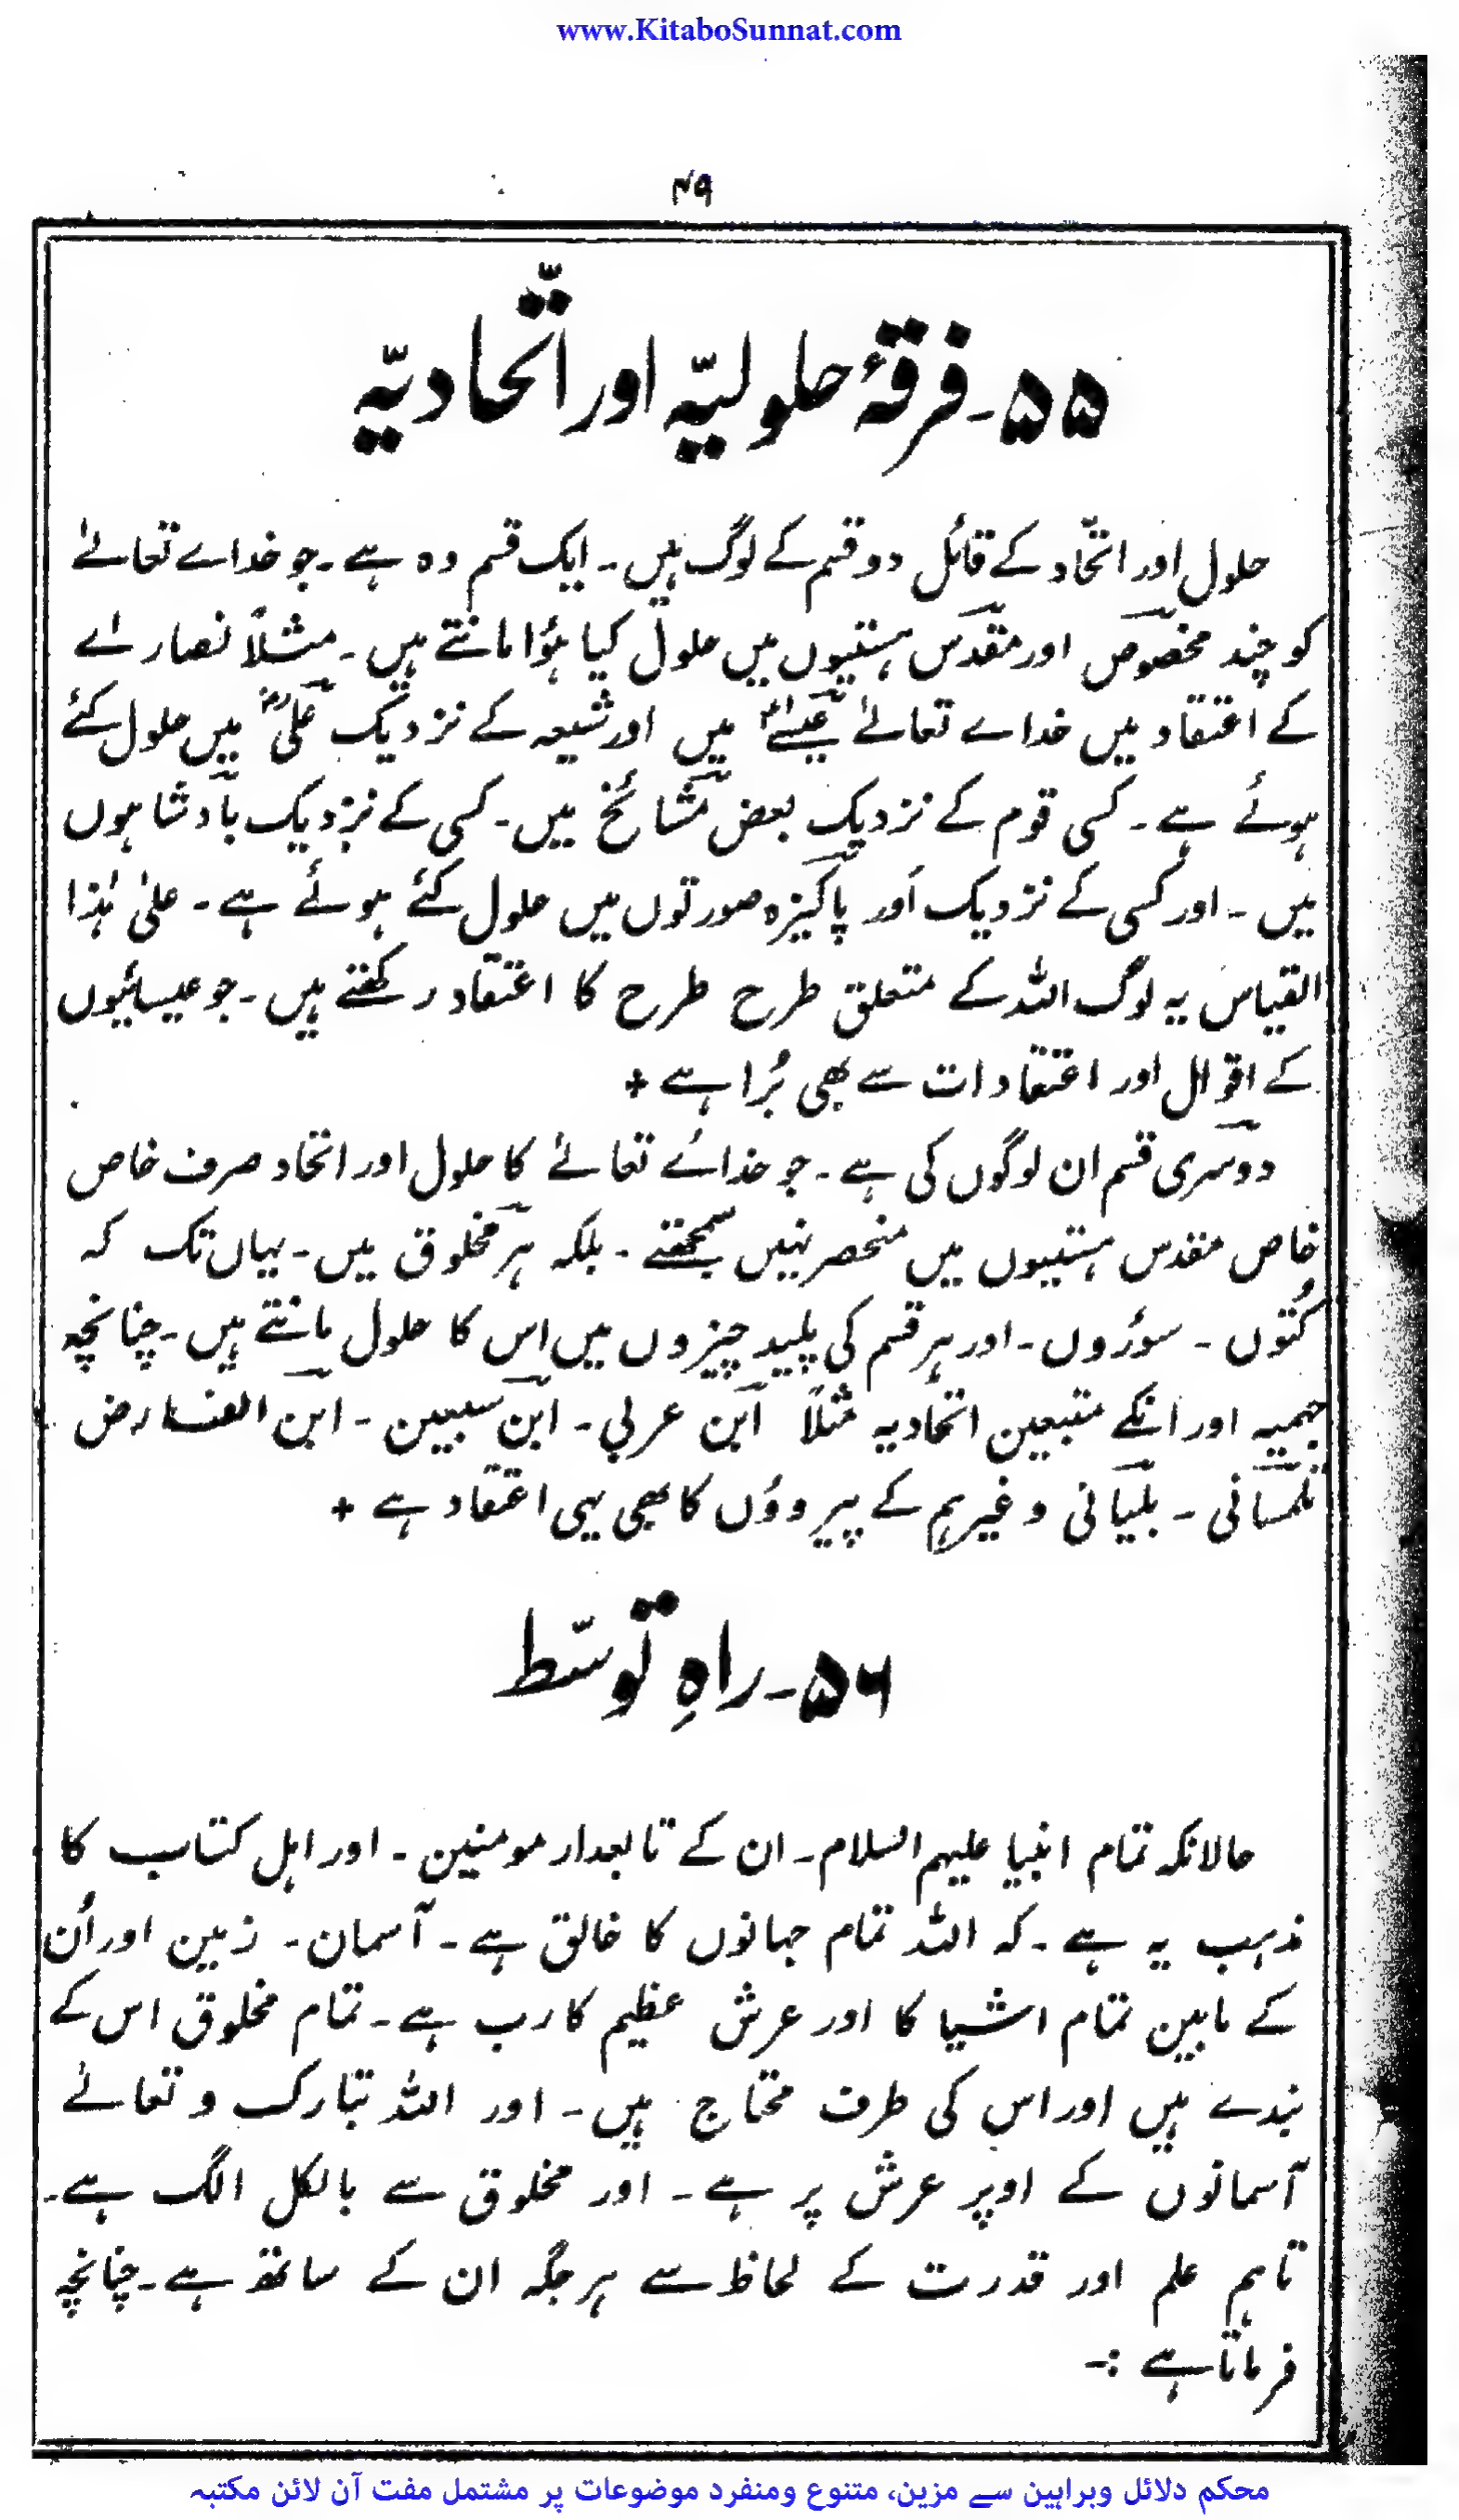 www.KitaboSunnat.com
۴۹
۵۵۔ فرقۂ حلولیّہ اور اتّحادیّہ
حلول اور اتحّاد کے قائل دو قسم کے لوگ ہیں۔ ایک قسم وہ ہے۔ جو خداے تعالےٰ
کو چند مخصوص اور مقدس ہستیوں میں حلول کیا ہؤا مانتے ہیں۔ مثلاً نصارےٰ
کے اعتقاد میں خداے تعالےٰ عیسےٰؑ میں اور شیعہ کے نزدیک علیؓ میں حلول کئے
ہوئے ہے۔ کسی قوم کے نزدیک بعض مشائخ میں۔ کسی کے نزدیک بادشاہوں
میں۔ اور کسی کے نزدیک اَور پاکیزہ صورتوں میں حلول کئے ہوئے ہے۔ علیٰ ہٰذا
القیاس یہ لوگ اللہ کے متعلق طرح طرح کا اعتقاد رکھتے ہیں۔ جو عیسائیوں
کے اقوال اور اعتقادات سے بھی بُرا ہے +
دوسری قسم ان لوگوں کی ہے۔ جو خدائے تعالےٰ کا حلول اور اتحاد صرف خاص
خاص مقدس ہستیوں میں منحصر نہیں سمجھتے۔ بلکہ ہر مخلوق میں۔ یہاں تک کہ
کُتوں۔ سؤروں۔ اور ہر قسم کی پلید چیزوں میں اس کا حلول مانتے ہیں۔ چنانچہ
جہمیہ اور انکے متبعین اتحادیہ مثلاً ابن عربی۔ ابن سبعین۔ ابن الفارض
تلمسانی۔ بلیانی وغیرہم کے پیروؤں کا بھی یہی اعتقاد ہے +
۵۶۔ راہِ توسّط
حالانکہ تمام انبیا علیہم السلام۔ ان کے تابعدار مومنین۔ اور اہل کتاب کا
مذہب یہ ہے۔ کہ اللہ تمام جہانوں کا خالق ہے۔ آسمان۔ زمین اور اُن
کے مابین تمام اشیا کا اور عرش عظیم کا رب ہے۔ تمام مخلوق اس کے
بندے ہیں اور اس کی طرف محتاج ہیں۔ اور اللہ تبارک و تعالےٰ
آسمانوں کے اوپر عرش پر ہے۔ اور مخلوق سے بالکل الگ ہے۔
تاہم علم اور قدرت کے لحاظ سے ہر جگہ ان کے ساتھ ہے۔ چنانچہ
فرماتا ہے :-
محکم دلائل وبراہین سے مزین، متنوع ومنفرد موضوعات پر مشتمل مفت آن لائن مکتبہ